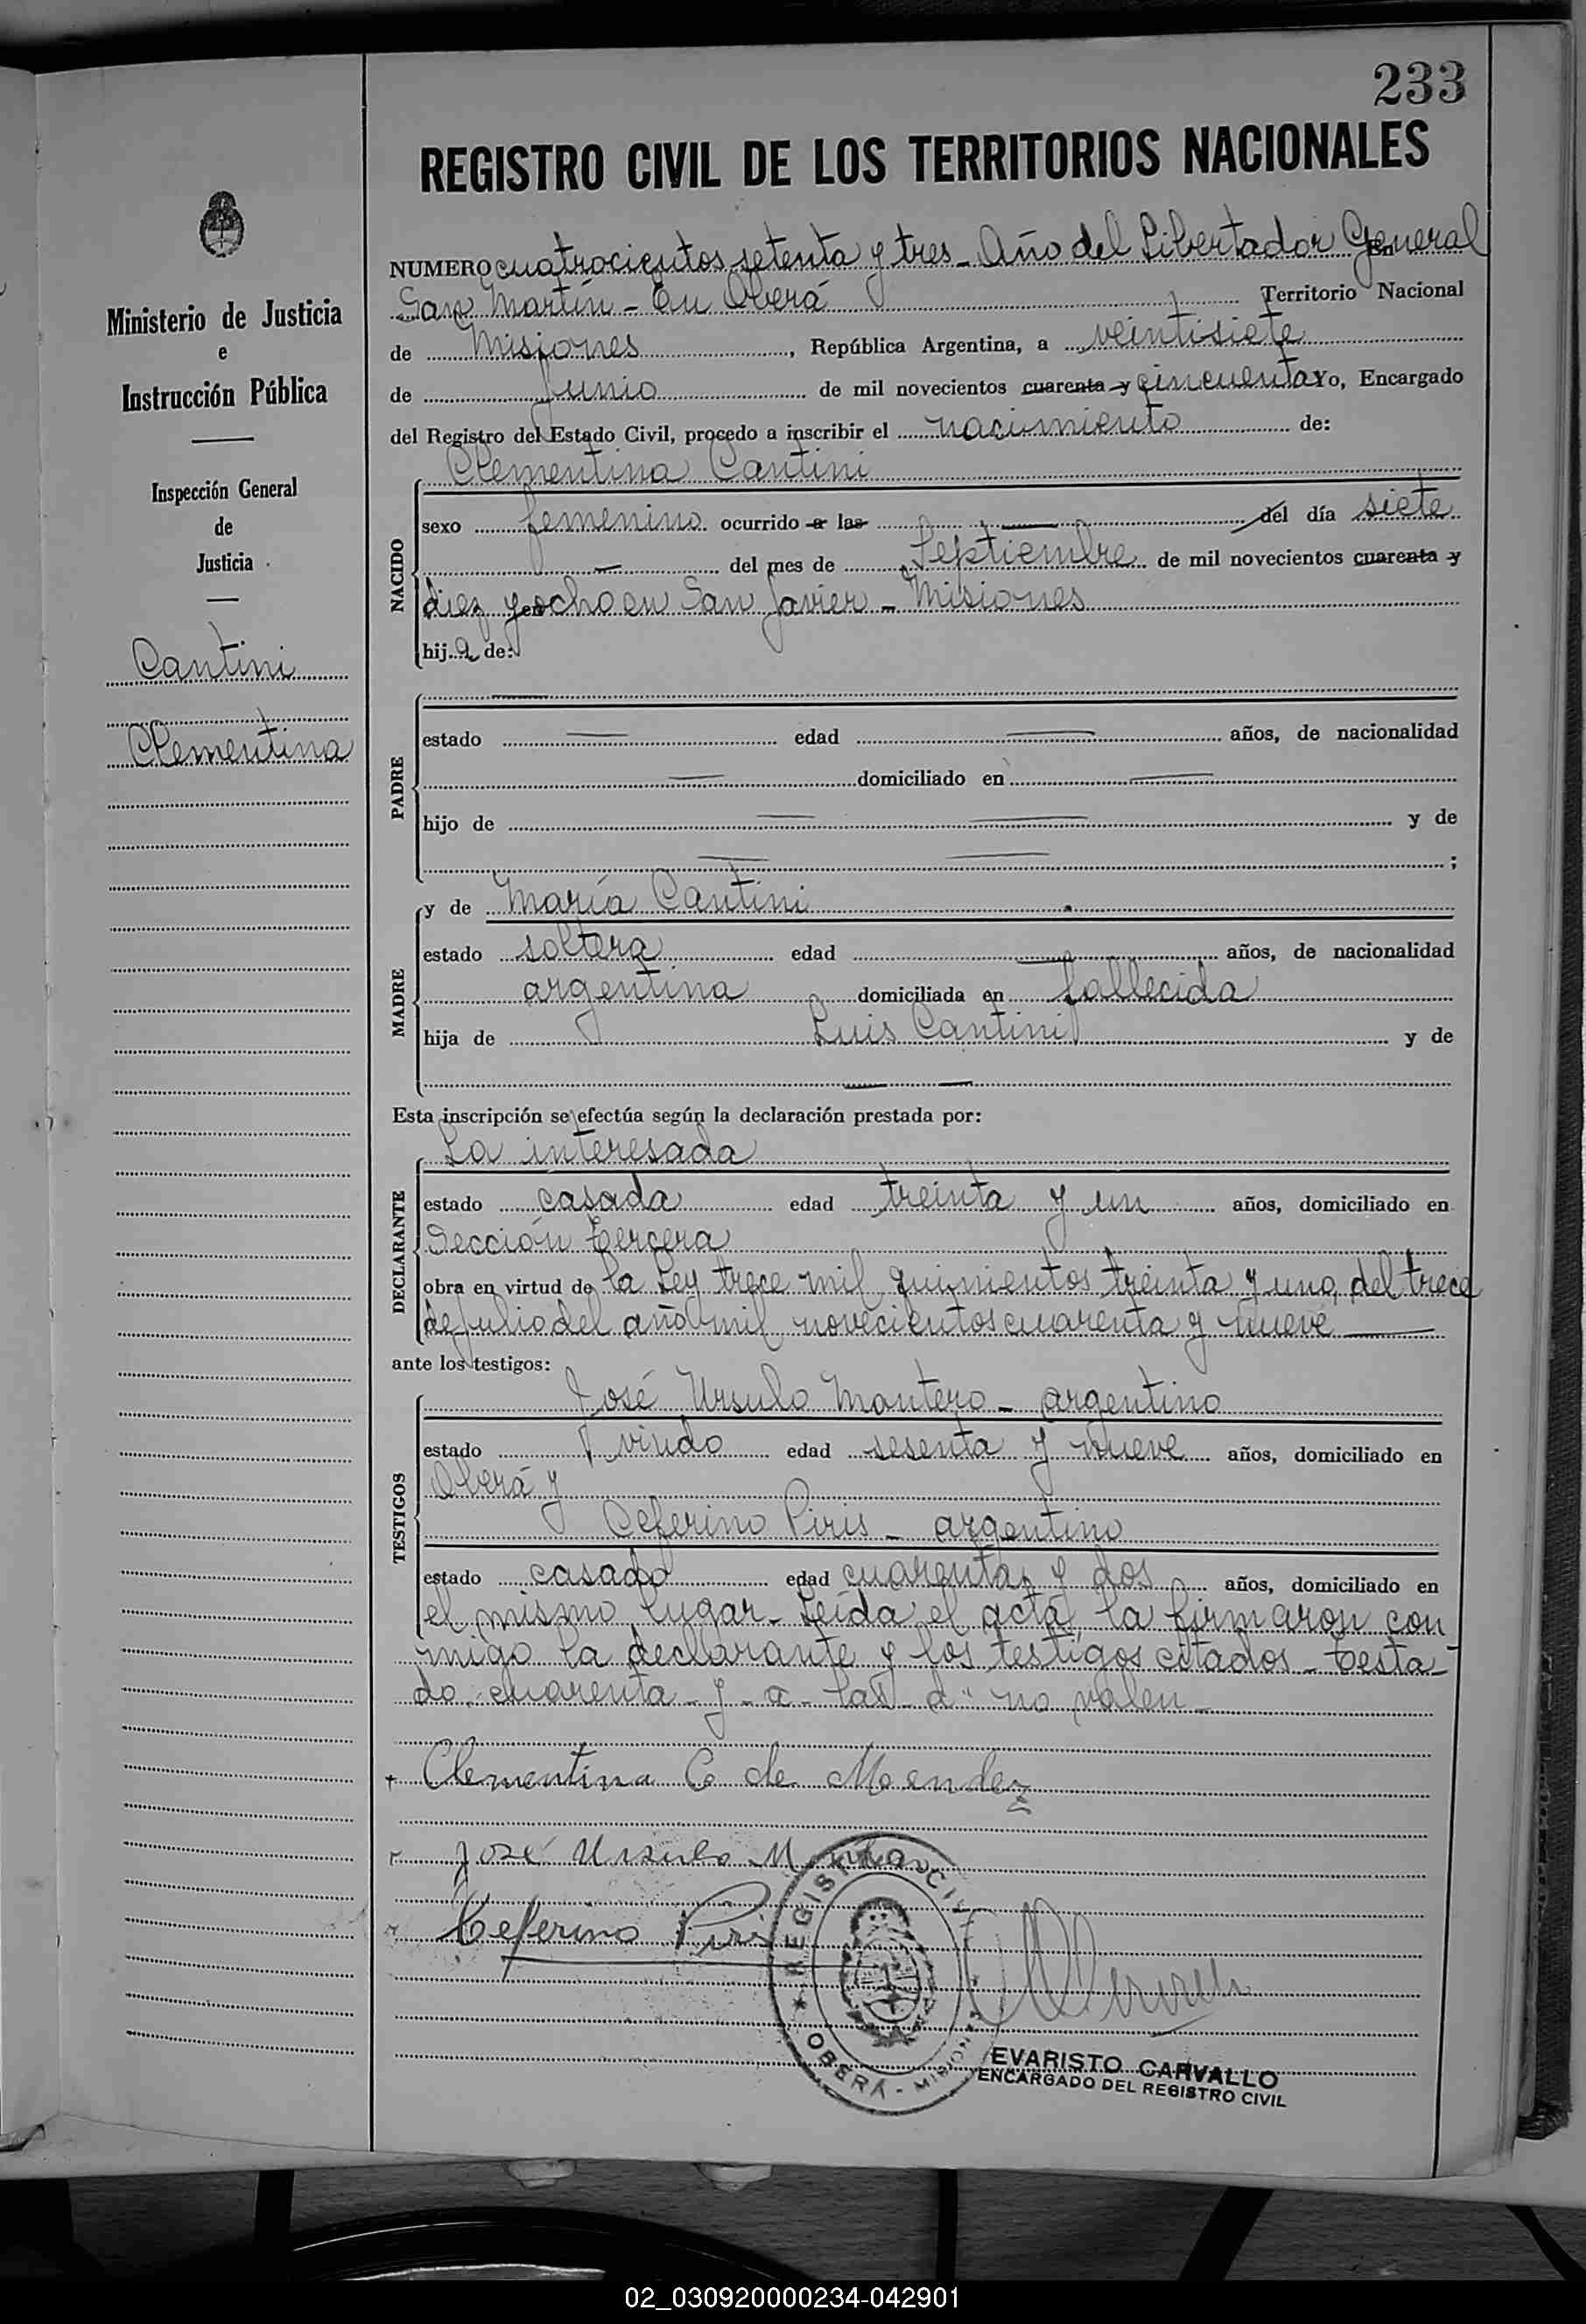 233
REGISTRO CIVIL DE LOS TERRITORIOS NACIONALES
Ministerio de Justicia
e
Instrucción Pública
Inspección General
de
Justicia
Cantini
Clementina
NUMERO cuatrocientos setenta y tres - Año del Libertador General En
San Martín - En Oberá Territorio Nacional
de Misiones, República Argentina, a veintisiete
de Junio de mil novecientos cuarenta y cincuenta Yo, Encargado
del Registro del Estado Civil, procedo a inscribir el nacimiento de:
Clementina Cantini
NACIDO
sexo femenino ocurrido a las — del día siete
— del mes de Septiembre de mil novecientos cuarenta y
diez y ocho en San Javier - Misiones
hija de:
PADRE
—
estado — edad — años, de nacionalidad
— domiciliado en —
hijo de — — y de
— — ;
MADRE
y de María Cantini
estado soltera edad — años, de nacionalidad
argentina domiciliada en fallecida
hija de Luis Cantini y de
— —
Esta inscripción se efectúa según la declaración prestada por:
DECLARANTE
La interesada
estado casada edad treinta y un años, domiciliado en
Sección tercera
obra en virtud de la Ley trece mil quinientos treinta y uno, del trece
de julio del año mil novecientos cuarenta y nueve —
ante los testigos:
TESTIGOS
José Ursulo Montero - argentino
estado viudo edad sesenta y nueve años, domiciliado en
Oberá y
Ceferino Piris - argentino
estado casado edad cuarenta y dos años, domiciliado en
el mismo lugar - Leída el acta, la firmaron con
migo la declarante y los testigos citados - Testa-
do "cuarenta - y - a - las - d" no valen -
Clementina C de Mendez
José Ursulo
Ceferino Piris
REGISTRO CIVIL
OBERÁ - MISIONES
EVARISTO CARVALLO
ENCARGADO DEL REGISTRO CIVIL
02_030920000234-042901